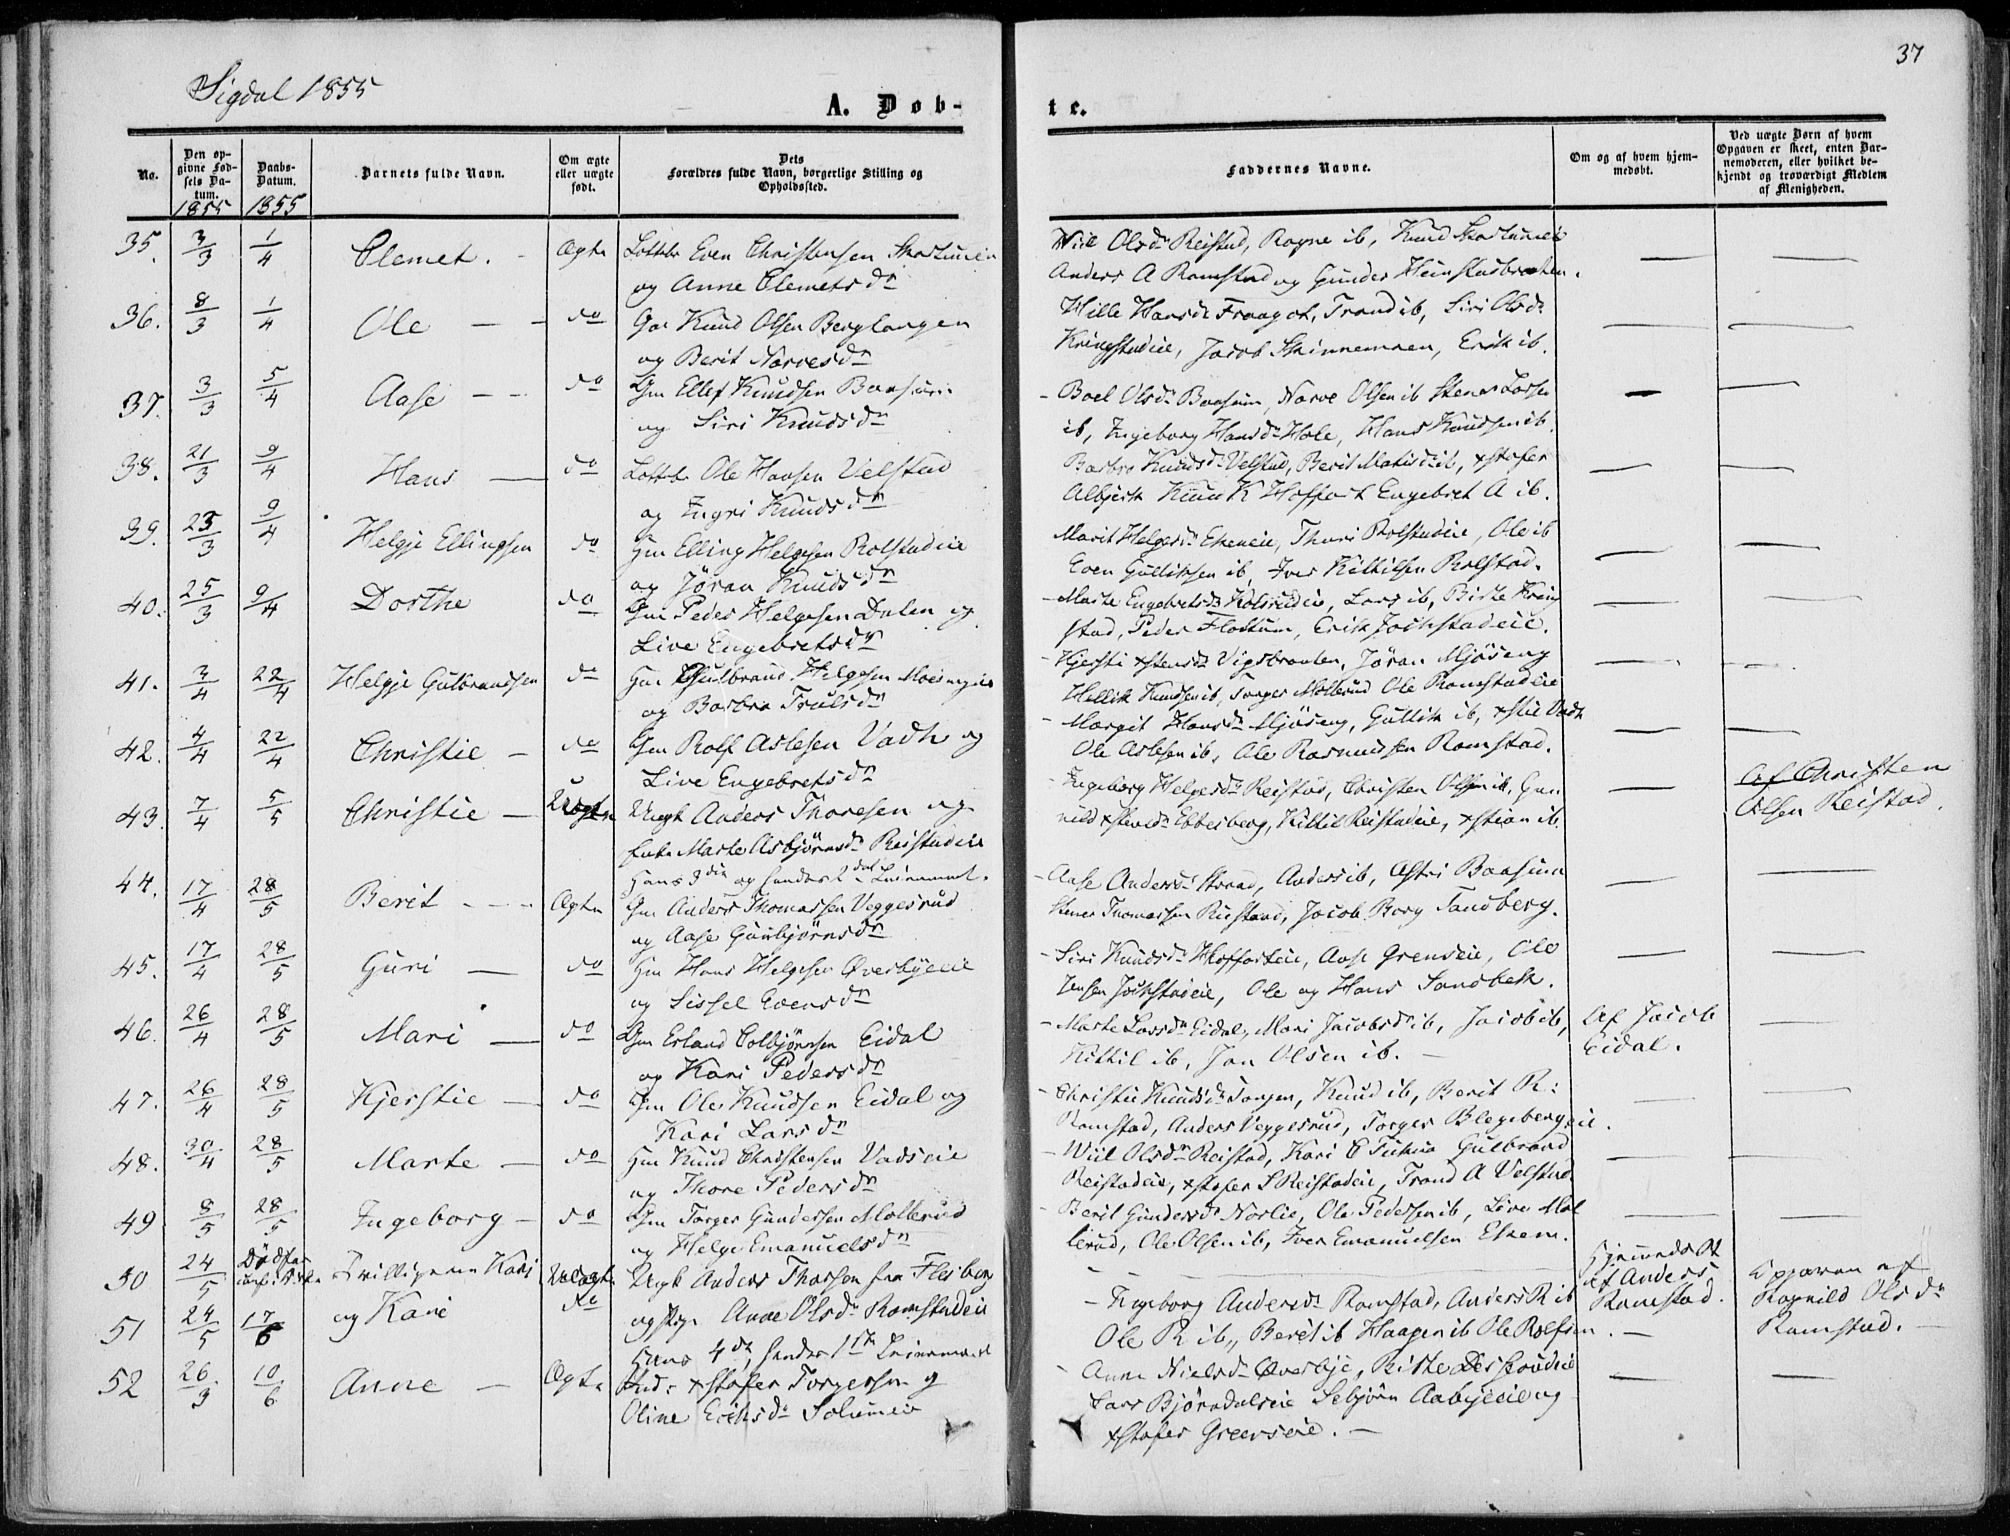 37
Sigdal 1855
A. Døb-
te.
No.
Den op-
givne Fød-
sels Da-
tum.
1855
Daabs-
Datum.
1855
Barnets fulde Navn.
Om ægte
eller uægte
født.
Dets
Forældres fulde Navn, borgerlige Stilling og
Opholdssted.
Faddernes Navne.
Om og af hvem hjem-
medøbt.
Ved uægte Børn af hvem
Opgaven er skeet, enten Bar-
nemoderen, eller hvilket be-
kjendt og troværdigt Medlem
af Menigheden.
35. 3/3 1/4 Clemet. - Ægte Even Christensen
og Anne Clemetsdr
Olsdr Reistad, Ragne ib, Knud
Anders A Ramstad og Gunder Heimstadbraaten.
36. 8/3 1/4 Ole - - do Gm Knud Olsen Berglangen
og Berit Narvesdr
Hille Hansdr, Trond ib, Siri Olsdr
Kringstadeie, Jacob Skinnemoen, Erik ib.
37. 3/3 5/4 Aase - - do Gm Ellef Knudsen Baasum
og Siri Knudsdr
- Boel Olsdr Baasum, Narve Olsen ib Stener Larsen
ib, Ingeborg Hansdr Hole, Hans Knudsen ib.
38. 21/3 9/4 Hans - do Ole Hansen Velstad
og Ingri Knudsdr
Barbro Knudsdr Velstad, Berit ib, xstofer
Knud K Hoffart Engebret A ib.
39. 23/3 9/4 Helge Ellingsen do Hm Elling Helgesen Rolstadeie
og Jøran Knudsdr
Marit Helgesdr, Thuri Rolstadeie, Ole ib
Even Gulliksen ib, Iver Kittilsen Rolstad.
40. 25/3 9/4 Dorthe do Gm Peder Helgesen Dalen og
Live Engebretsdr
- Marte Engebretsdr Kolsrudeie, Lars ib, Birte Kring
stad, Peder Flattum, Erik Jochstadeie.
41. 3/4 22/4 Helge Gulbrandsen do Gulbrand Helgesen
og Barbro Trulsdr
- Kjersti xstensdr Vigsbraaten, Jøran Mjøseng
Hellik Knudsen ib, Torger Møllerud Ole Ramstadeie
42. 4/4 22/4 Christie - do Gm Rolf Aslesen Vadh og
Live Engebretsdr
- Margit Hansdr Mjøseng, Gullik ib, xstie Vadh
Ole Aslesen ib, Ole Rasmussen Ramstad.
43. 7/4 5/5 Christie - Uægte Ungk Anders Thoresen og
Enke Marte Asbjørnsdr Reistadeie
Hans 3die og hendes 2det Leiermaal.
- Ingeborg Helgesdr Reistad, Christen Olsen ib, Gun
xstensdr Ebbesberg, Kittil Reistadeie, xstian ib.
Af Christen
Olsen Reistad.
44. 17/4 28/5 Berit - - - Ægte Gm Anders Thomassen Veggesrud
og Aase Gunbjørnsdr
- Aase Andersdr Straad, Anders ib, Astri Baasum
Stener Thomassen, Jacob Borg Sandberg.
45. 17/4 28/5 Guri - do Hm Hans Helgesen Øverbyeeie
og Sissel Evensdr
- Siri Knudsdr Hoffarteie, Aase Grenseie, Ole
Jensen Jochstadeie, Ole og Hans Sandbæk.
46. 26/4 28/5 Mari - do Gm Erland Colbjørnsen Eidal
og Kari Pedersdr
- Marte Larsdr Eidal, Mari Jacobsdr ib, Jacob ib,
Kittil ib, Jan Olsen ib. -
Af Jacob
Eidal.
47. 26/4 28/5 Kjerstie - do Gm Ole Knudsen Eidal og
Kari Larsdr
- Christie Knudsdr, Knud ib, Berit R:
Ramstad, Anders Veggesrud, Torger Blegebergeie.
48. 30/4 28/5 Marte - do Hm Knud Christensen Vadseie
og Thore Pedersdr
- Olsdr Reistad, Kari Gulbrand
Reistadeie, xstofer S Reistadeie, Trond A Velstad
49 8/5 28/5 Ingeborg - do Gm Torger Gundersen Møllerud
og Helge Emanuelsdr
- Berit Gundersdr Norlie, Ole Pedersen ib, Live Møl
lerud, Ole Olsen ib, Iver Emanuelsen Ekern.
50 24/5 Dødfør Tvillingerne Kari Uægte Ungk Anders Thorsen fra Flesberg
Hjemmedøbt
af Anders
Ramstad.
51 24/5 17/6 og Kari do og Pige Anne Olsdr Ramstadeie
Hans 4de, hendes 1ste Leiermaal
- Ingeborg Andersdr Ramstad, Anders R ib
Ole R ib, Berit ib Haagen ib Ole Rolfsen. -
Opgaven af
Ragnild Olsdr
Ramstad. -
52 26/3 10/6 Anne - Ægte xstofer Torgersen og
Oline Eriksdr Solumeie
- Anne Nielsdr Øverbye, Birte
Lars Bjøredalseie Sebjørn Aabyeeie og
xstofer Greenseie. -